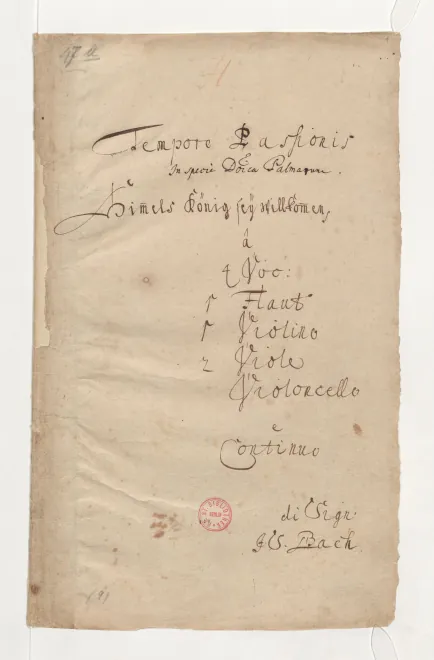 Tempore Passionis
In specie Dõica Palmarum.
Him̃els König seÿ willkom̃en,
â
4 Voc:
1 Flaut
1 Violino
2 Viole
Violoncello
e
Continuo
di Sign:
J. S. Bach.